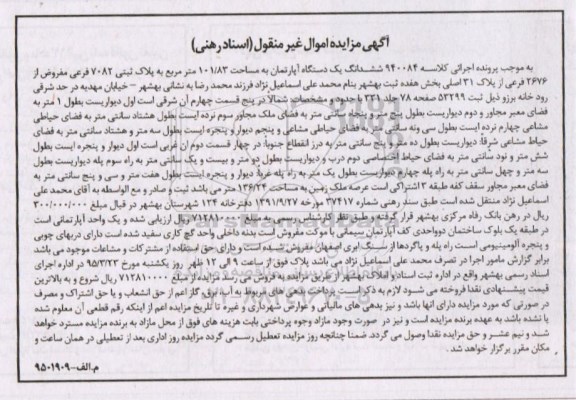 آگهی مزایده اموال غیر منقول (اسناد رهنی)
به موجب پرونده اجرائی کلاسه ۹۴۰۰۸۴ ششدانگ یک دستگاه آپارتمان به مساحت ۱۰۱/۸۳ متر مربع به پلاک ثبتی ۷۰۸۲ فرعی مفروض از
۲۶۷۶ فرعی از پلاک ۳۱ اصلی بخش هفده ثبت بهشهر بنام محمد علی اسماعیل نژاد فرزند محمد رضا به نشانی بهشهر - خیابان مهدیه در حد شرقی
رود خانه برزو ذیل ثبت ۵۳۲۹۹ صفحه ۷۸ جلد حدود و مشخصات شمالاً در پنج قسمت چهارم آن شرقی است اول دیواریست بطول ۱ متر به
فضای معبر مجاور و دوم دیواریست بطول پنجاه سانتی متر به فضای ملک مجاور سوم نرده ایست بطول هشتاد سانتی متر به فضای حیاطی
مشاعی چهارم نرده ایست بطول سی و نه سانتی متر به فضای حیاطی مشاعی و پنجم دیوار و پنجره ایست بطول سه متر و هشتاد سانتی متر به فضای
حیاط مشاعی شرقاً: دیواریست بطول ده متر و پنج سانتی متر به درز انقطاع جنوباً: در چهار قسمت دوم آن غربی است اول دیوار و پنجره ایست بطول
شش متر و نود سانتی متر به فضای حیاط اختصاصی دوم درب و دیواریست بطول دو متر و بیست و یک سانتی متر به راه سوم پله دیواریست بطول
سه متر و چهل سانتی متر به راه پله چهارم دیواریست بطول یک متر به راه پله غرباً: دیوار و پنجره ایست بطول هفت متر و سی و پنج سانتی متر به
فضای معبر مجاور سقف کفه طبقه ۳ اشتراکی است عرصه ملک زمین به مساحت ۱۳۶/۲۴ متر می باشد ثبت و صادر و مع الواسطه به آقای محمد علی
اسماعیل نژاد منتقل شده است طبق سند رهنی شماره ۳۷۴۱۷ مورخه ۱۳۹۱/۹/۲۷ دفترخانه ۱۲۴ شهرستان بهشهر در قبال مبلغ ۳۰۰/۰۰۰/۰۰۰
ریال در رهن بانک رفاه مرکزی بهشهر قرار گرفته و طبق نظر کارشناس رسمی به مبلغ ۷۱۲۸۱۰۰۰۰ ریال ارزیابی شده و یک واحد آپارتمانی است
در طبقه یک بلوک ساختمان دوواحدی کف آپارتمان سیمانی با موکت مفروش است بدنه داخلی واحد گچ کاری سفید شده است دارای دربهای چوبی
و پنجره آلومینیومی است راه پله و پاگردها از سنگ ابری اصفهان مفروش شده است و دارای حق استفاده از مشترکات و مشاعات موجود می باشد
برابر گزارش مامور اجرا در تصرف محمد علی اسماعیل نژاد می باشد پلاک فوق از ساعت ۹ الی ۱۲ ظهر روز یکشنبه مورخ ۹۵/۳/۲۳ در اداره اجرای
اسناد رسمی بهشهر واقع در اداره ثبت اسناد و املاک بهشهر از طریق مزایده به فروش می رسد مزایده از مبلغ ۷۱۲۸۱۰۰۰۰ ریال شروع و به بالاترین
قیمت پیشنهادی نقدا فروخته می شود لازم به ذکر است پرداخت بدهی های مربوط به آب، برق و گاز اعم از حق انشعاب و یا حق اشتراک و مصرف
در صورتی که مورد مزایده دارای آنها باشد و نیز بدهی های مالیاتی و عوارض شهرداری و غیره تا تاریخ مزایده اعم از اینکه رقم قطعی آن معلوم شده
یا نشده باشد به عهده برنده مزایده است و نیز در صورت وجود مازاد وجوه پرداختی بابت هزینه های فوق از محل مازاد به برنده مزایده مسترد خواهد
شد و نیم عشر و حق مزایده نقدا وصول می گردد. ضمنا چنانچه روز مزایده تعطیل رسمی گردد مزایده روز اداری بعد از تعطیلی در همان ساعت و
مکان مقرر برگزار خواهد شد.
م.الف-۹۵۰۱۹۰۹